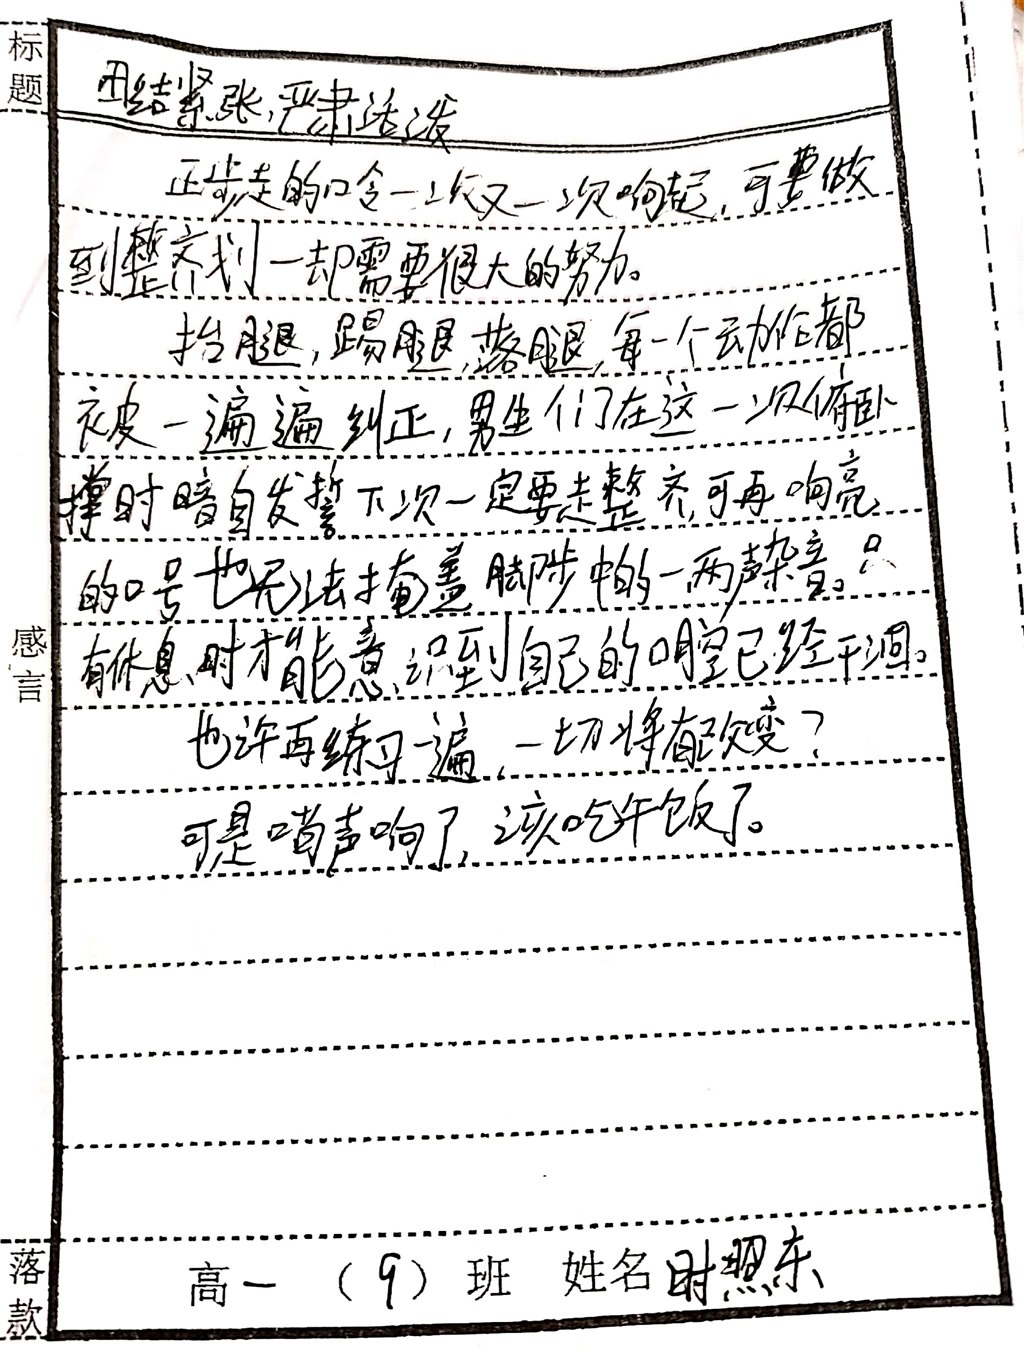 标题
团结紧张,严肃活泼
正步走的口令一次又一次响起,可要做
到整齐划一却需要很大的努力。
抬腿,踢腿,落腿,每一个动作都
被一遍遍纠正,男生们在这一次俯卧
撑时暗自发誓下次一定要走整齐,可再响亮
的口号也无法掩盖脚步中的一两声杂音。只
有休息时才能意识到自己的口腔已经干涸。
也许再练习一遍,一切将有改变?
可是哨声响了,该吃午饭了。
感言
落款
高一(9)班 姓名 时照东